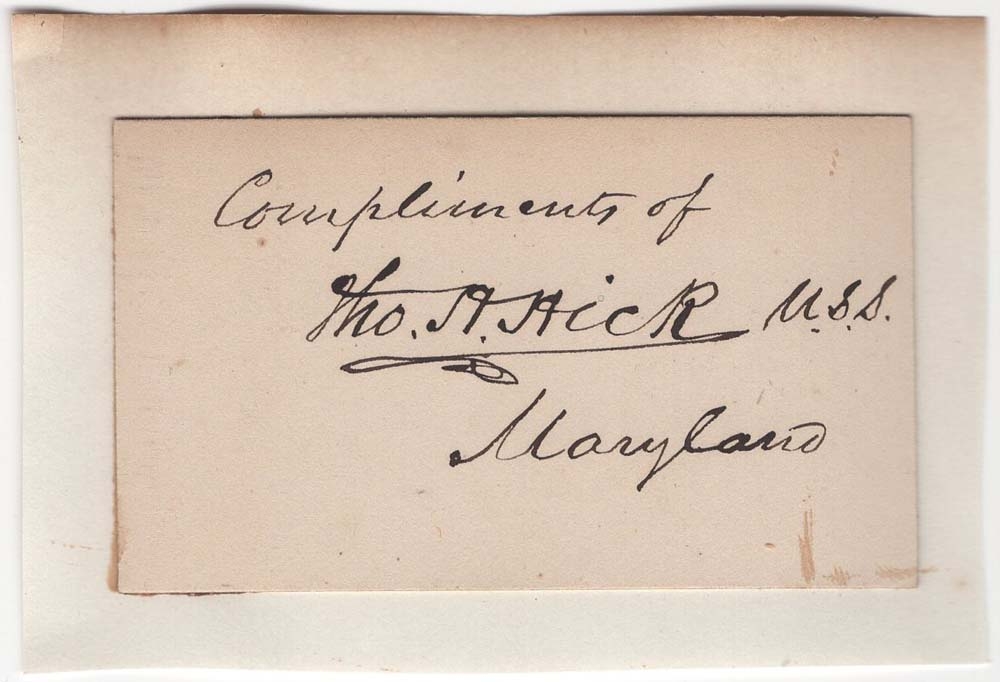 Compliments of
Tho. H. Hicks U.S.S.
Maryland